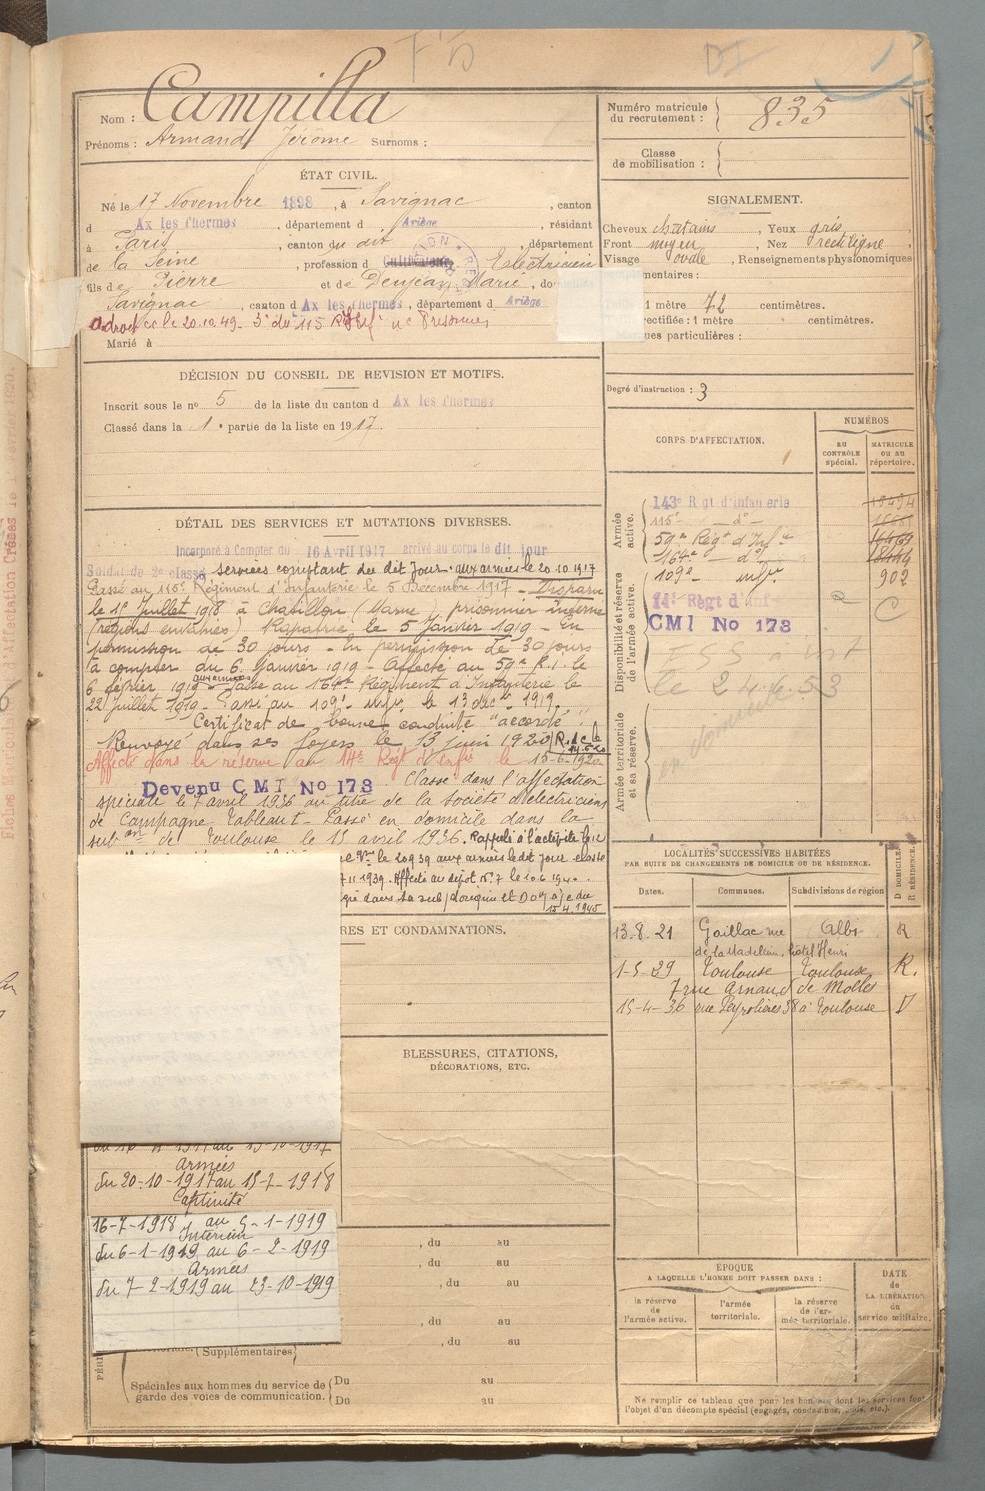 Nom : Campilla
Prénoms : Armand Jérôme Surnoms :
ÉTAT CIVIL.
Né le 17 Novembre 1898, à Savignac, canton
d Ax les Thermes, département d Ariège, résidant
à Paris, canton du dit, département
de la Seine, profession d Cultivateur Electricien
fils de Pierre et de Denjean Marie, do
Savignac, canton d Ax les Thermes, département d Ariège
a droit ce le 20.10.49
Marié à
DÉCISION DU CONSEIL DE REVISION ET MOTIFS.
Inscrit sous le no 5 de la liste du canton d Ax les Thermes
Classé dans la 1e partie de la liste en 1917.
DÉTAIL DES SERVICES ET MUTATIONS DIVERSES.
Incorporé à Compter du 16 Avril 1917 arrivé au corps le dit jour
Soldat de 2e classe services comptant du dit jour. aux armées le 20.10.1917
Passé au 115e Régiment d'Infanterie le 5 Décembre 1917 - Disparu
le 15 Juillet 1918 à Chatillon (Marne) prisonnier interné
(régions envahies) Rapatrié le 5 Janvier 1919 - En
permission de 30 jours - En permission de 30 jours
à compter du 6 Janvier 1919 - Affecté au 59e R.I. le
6 février 1919 aux armées - Passé au 164e Régiment d'Infanterie le
22 Juillet 1919 - Passé au 109e Infie le 13 déc. 1919.
Certificat de bonne conduite "accordé".
Renvoyé dans ses foyers le 13 juin 1920
Affecté dans la réserve au 14e Régt d'Infie le 15-6-1920
Devenu CMI No 173 Classé dans l'affectation
spéciale le 7 avril 1936 au titre de la Société d'électriciens
de Campagne Tableau I - Passé en domicile dans la
subon de Toulouse le 15 avril 1936. Rappelé à l'activité le 2
le 20 9 39 aux armées le dit jour. classé
7 11 1939. Affecté au dépôt No 7 le 10.6.1940.
dans sa sub/d'origine et
15.4.1945
RES ET CONDAMNATIONS.
BLESSURES, CITATIONS,
DÉCORATIONS, ETC.
Armées
du 20-10-1917 au 15-7-1918
Captivité
16-7-1918 au 5-1-1919
Intérieur
du 6-1-1919 au 6-2-1919
Armées
du 7-2-1919 au 23-10-1919
, du au
, du au
, du au
, du au
, du au
(Supplémentaires)
Spéciales aux hommes du service de garde des voies de communication. Du au
Du au
Numéro matricule du recrutement : 835
Classe de mobilisation :
SIGNALEMENT.
Cheveux chatains, Yeux gris
Front moyen, Nez rectiligne
Visage ovale, Renseignements physionomiques
mentaires :
1 mètre 72 centimètres.
rectifiée : 1 mètre centimètres.
ques particulières :
Degré d'instruction : 3
CORPS D'AFFECTATION.
NUMÉROS
AU CONTRÔLE spécial.
MATRICULE OU AU répertoire.
Armée active.
143e Rgt d'infanterie
115e - do -
59e Régt d'Infie
164e - do
109e - infie 902
Disponibilité et réserve de l'armée active.
14e Régt d'inf
CMI No 173
le 24.6.53
Armée territoriale et sa réserve.
LOCALITÉS SUCCESSIVES HABITÉES
PAR SUITE DE CHANGEMENTS DE DOMICILE OU DE RÉSIDENCE.
Dates. Communes. Subdivisions de région D DOMICILE. R RÉSIDENCE.
13-8-21 Gaillac rue Albi R
de la Madeleine, hôtel Henri
1-5-29 Toulouse Toulouse R.
7 rue Arnaud de Molles
15-4-36 rue Peyrolières 38 à Toulouse D
ÉPOQUE
A LAQUELLE L'HOMME DOIT PASSER DANS :
la réserve de l'armée active. l'armée territoriale. la réserve de l'armée territoriale.
DATE
DE LA LIBÉRATION
du
service militaire.
Ne remplir ce tableau que pour les hommes dont les services font
l'objet d'un décompte spécial (engagés, condamnés, omis, etc.).